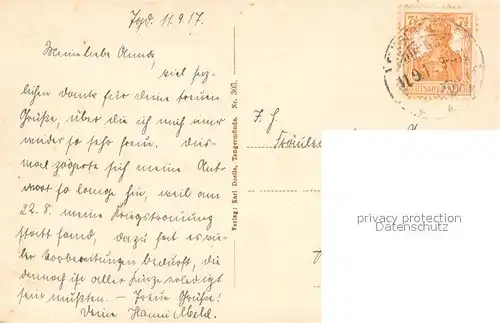 11.9.17.
Meine liebe Anna,
viel herz-
lichen Dank für deine treuen
Grüße, über die ich mich immer
wieder so sehr freue. Dies-
mal zögerte sich meine Ant-
wort so lange hin, weil am
22. 8. meine Kriegstrauung
statt fand, dazu hat es
Vorbereitungen bedurft, die
dennoch in aller Kürze erledigt
sein mußten. – Treue Grüße!
Deine Hanni
Verlag: Karl Doelle, Tangermünde. Nr. 303.
Fräulein
7½ 7½
DEUTSCHES REICH
privacy protection
VERMEIDUNG